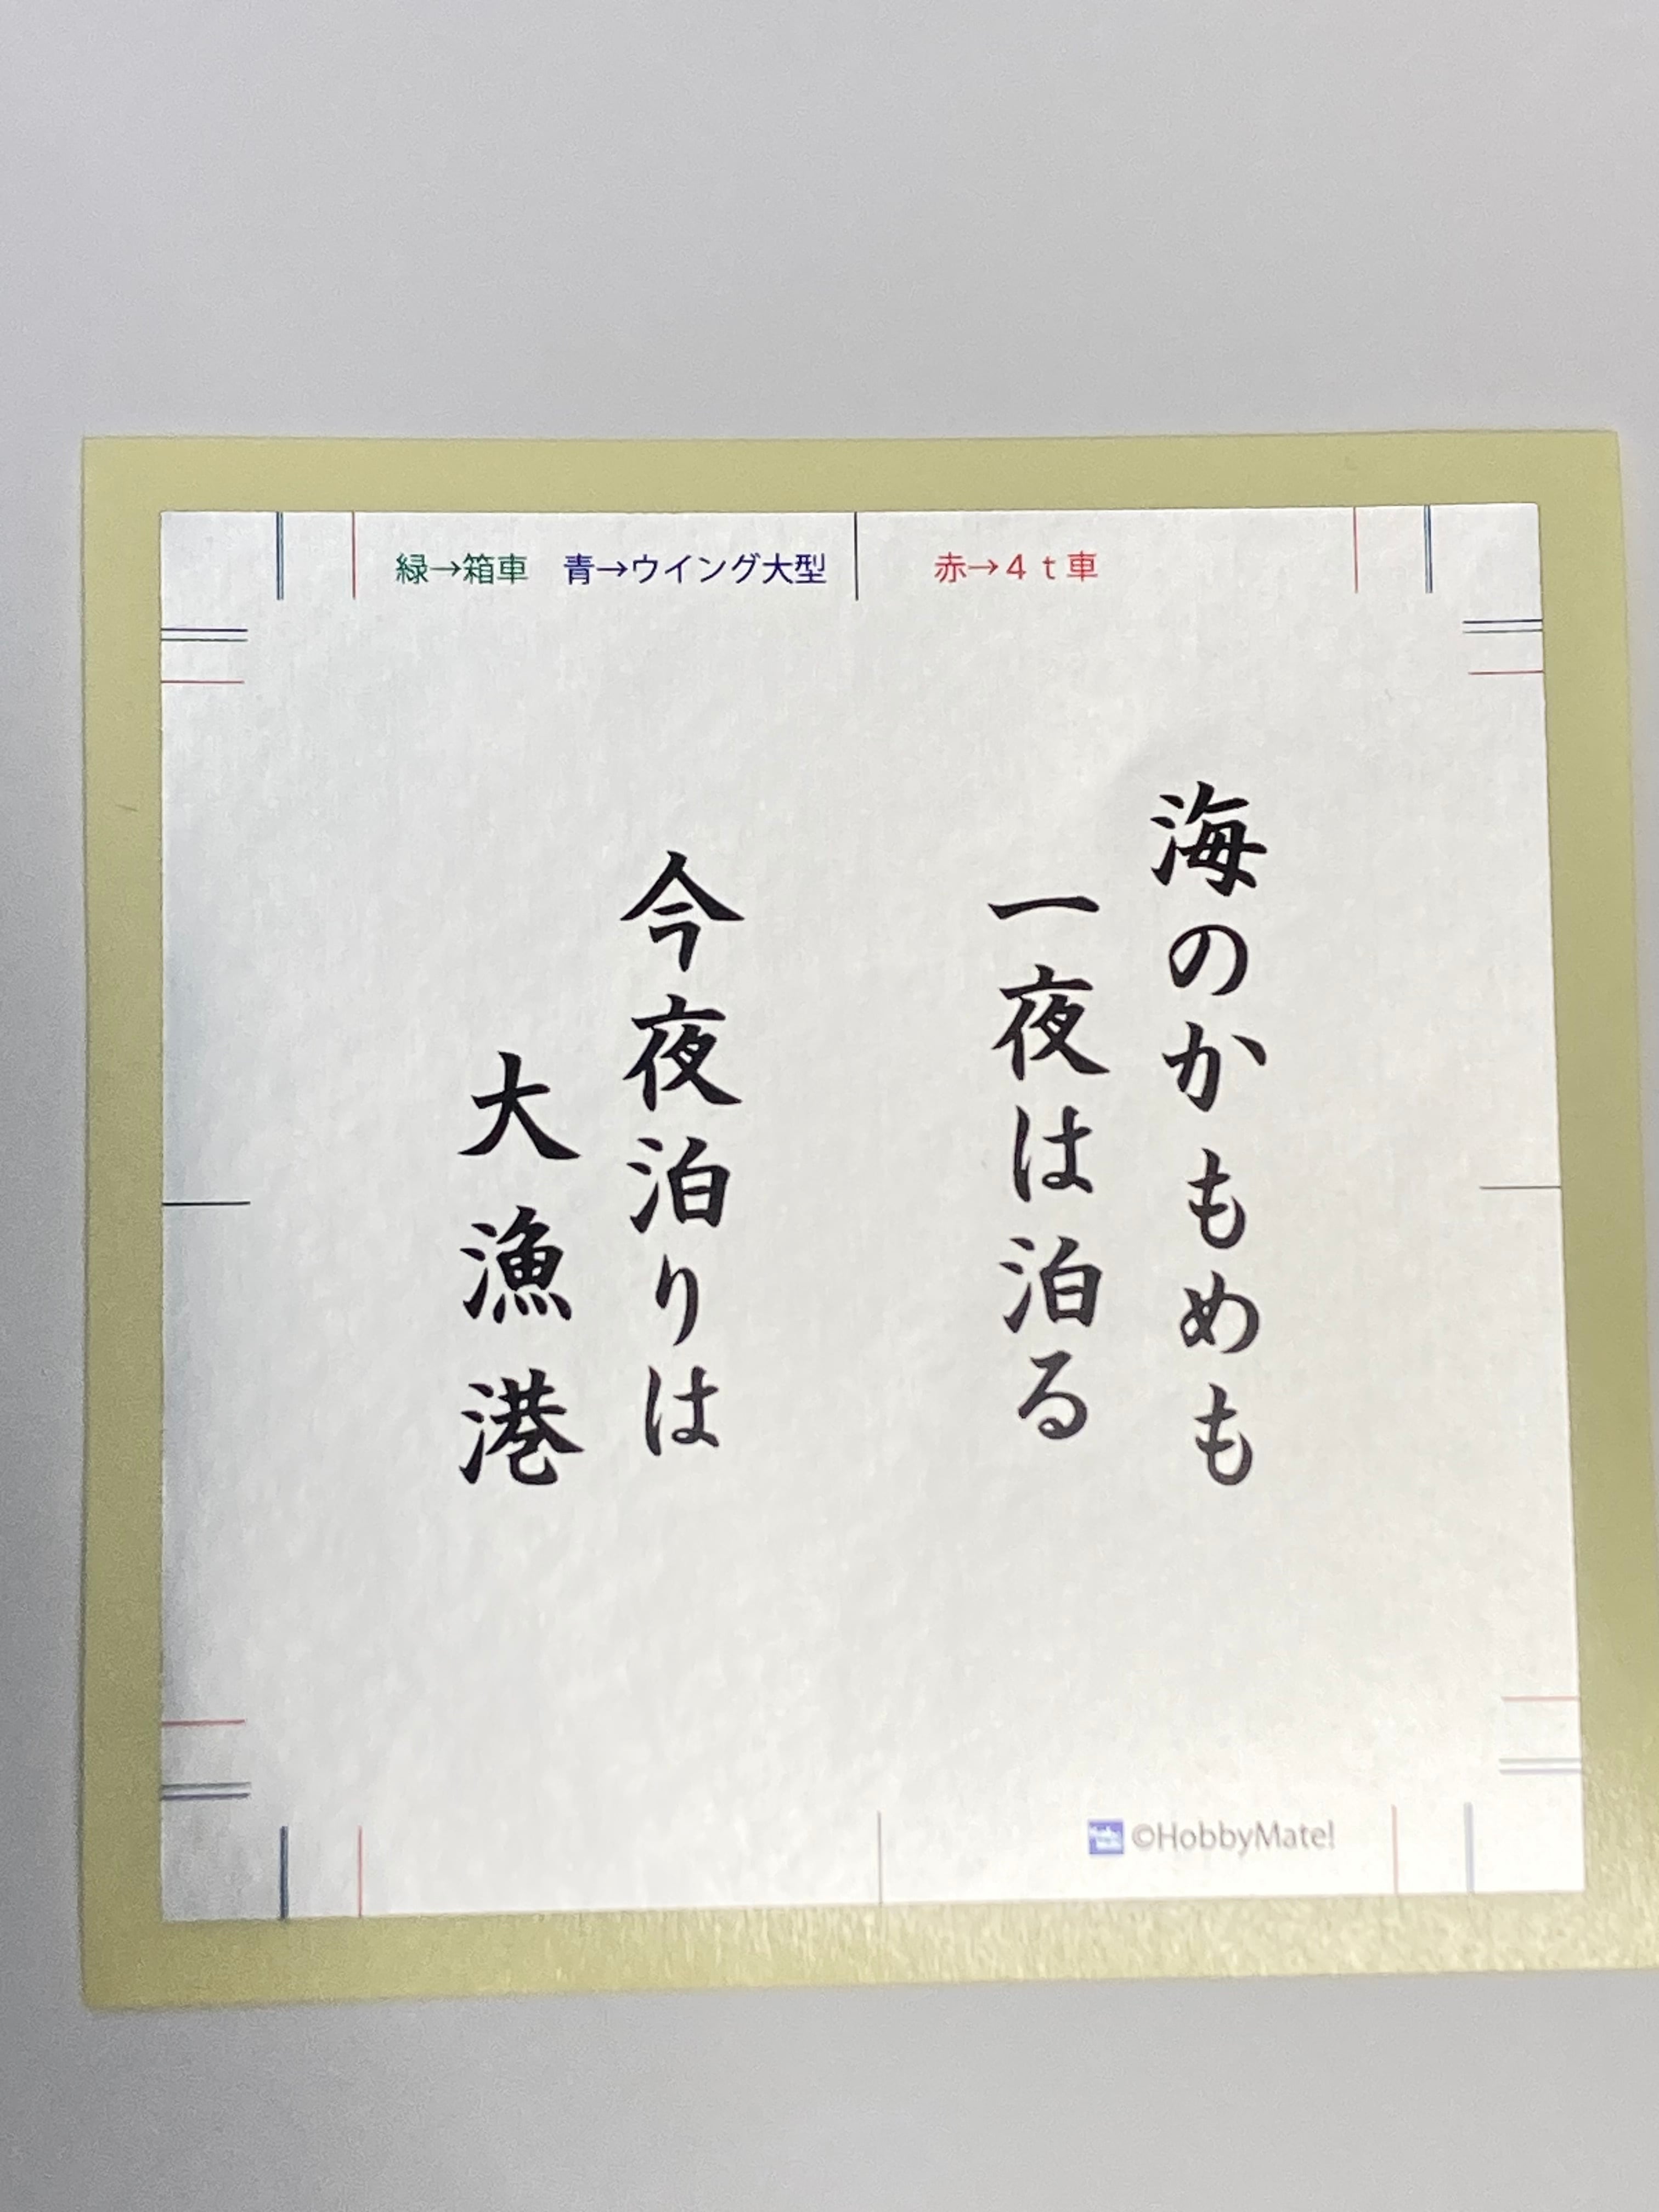 緑→箱車　青→ウイング大型　赤→４ｔ車
海のかもめも
一夜は泊る
今夜泊りは
大漁港
©HobbyMate!